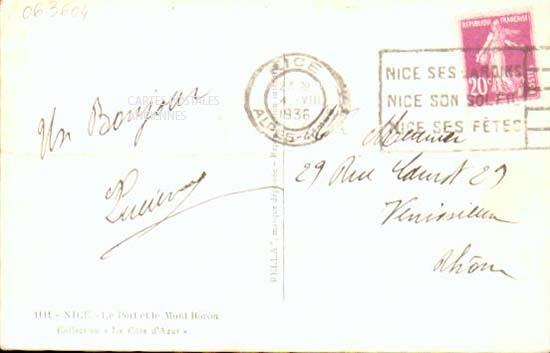 063604
Un Bonjour
Lucien
CARTES POSTALES
ANCIENNES
NICE
4 VIII
1936
ALPES-
REPUBLIQUE FRANÇAISE
20c
POSTES
NICE SES JARDINS
NICE SON SOLEIL
NICE SES FÊTES
Meunier
29 Rue Carnot 29
Venissieux
Rhône
1111. - NICE. - Le Port et le Mont Boron
Collection « La Côte d'Azur »